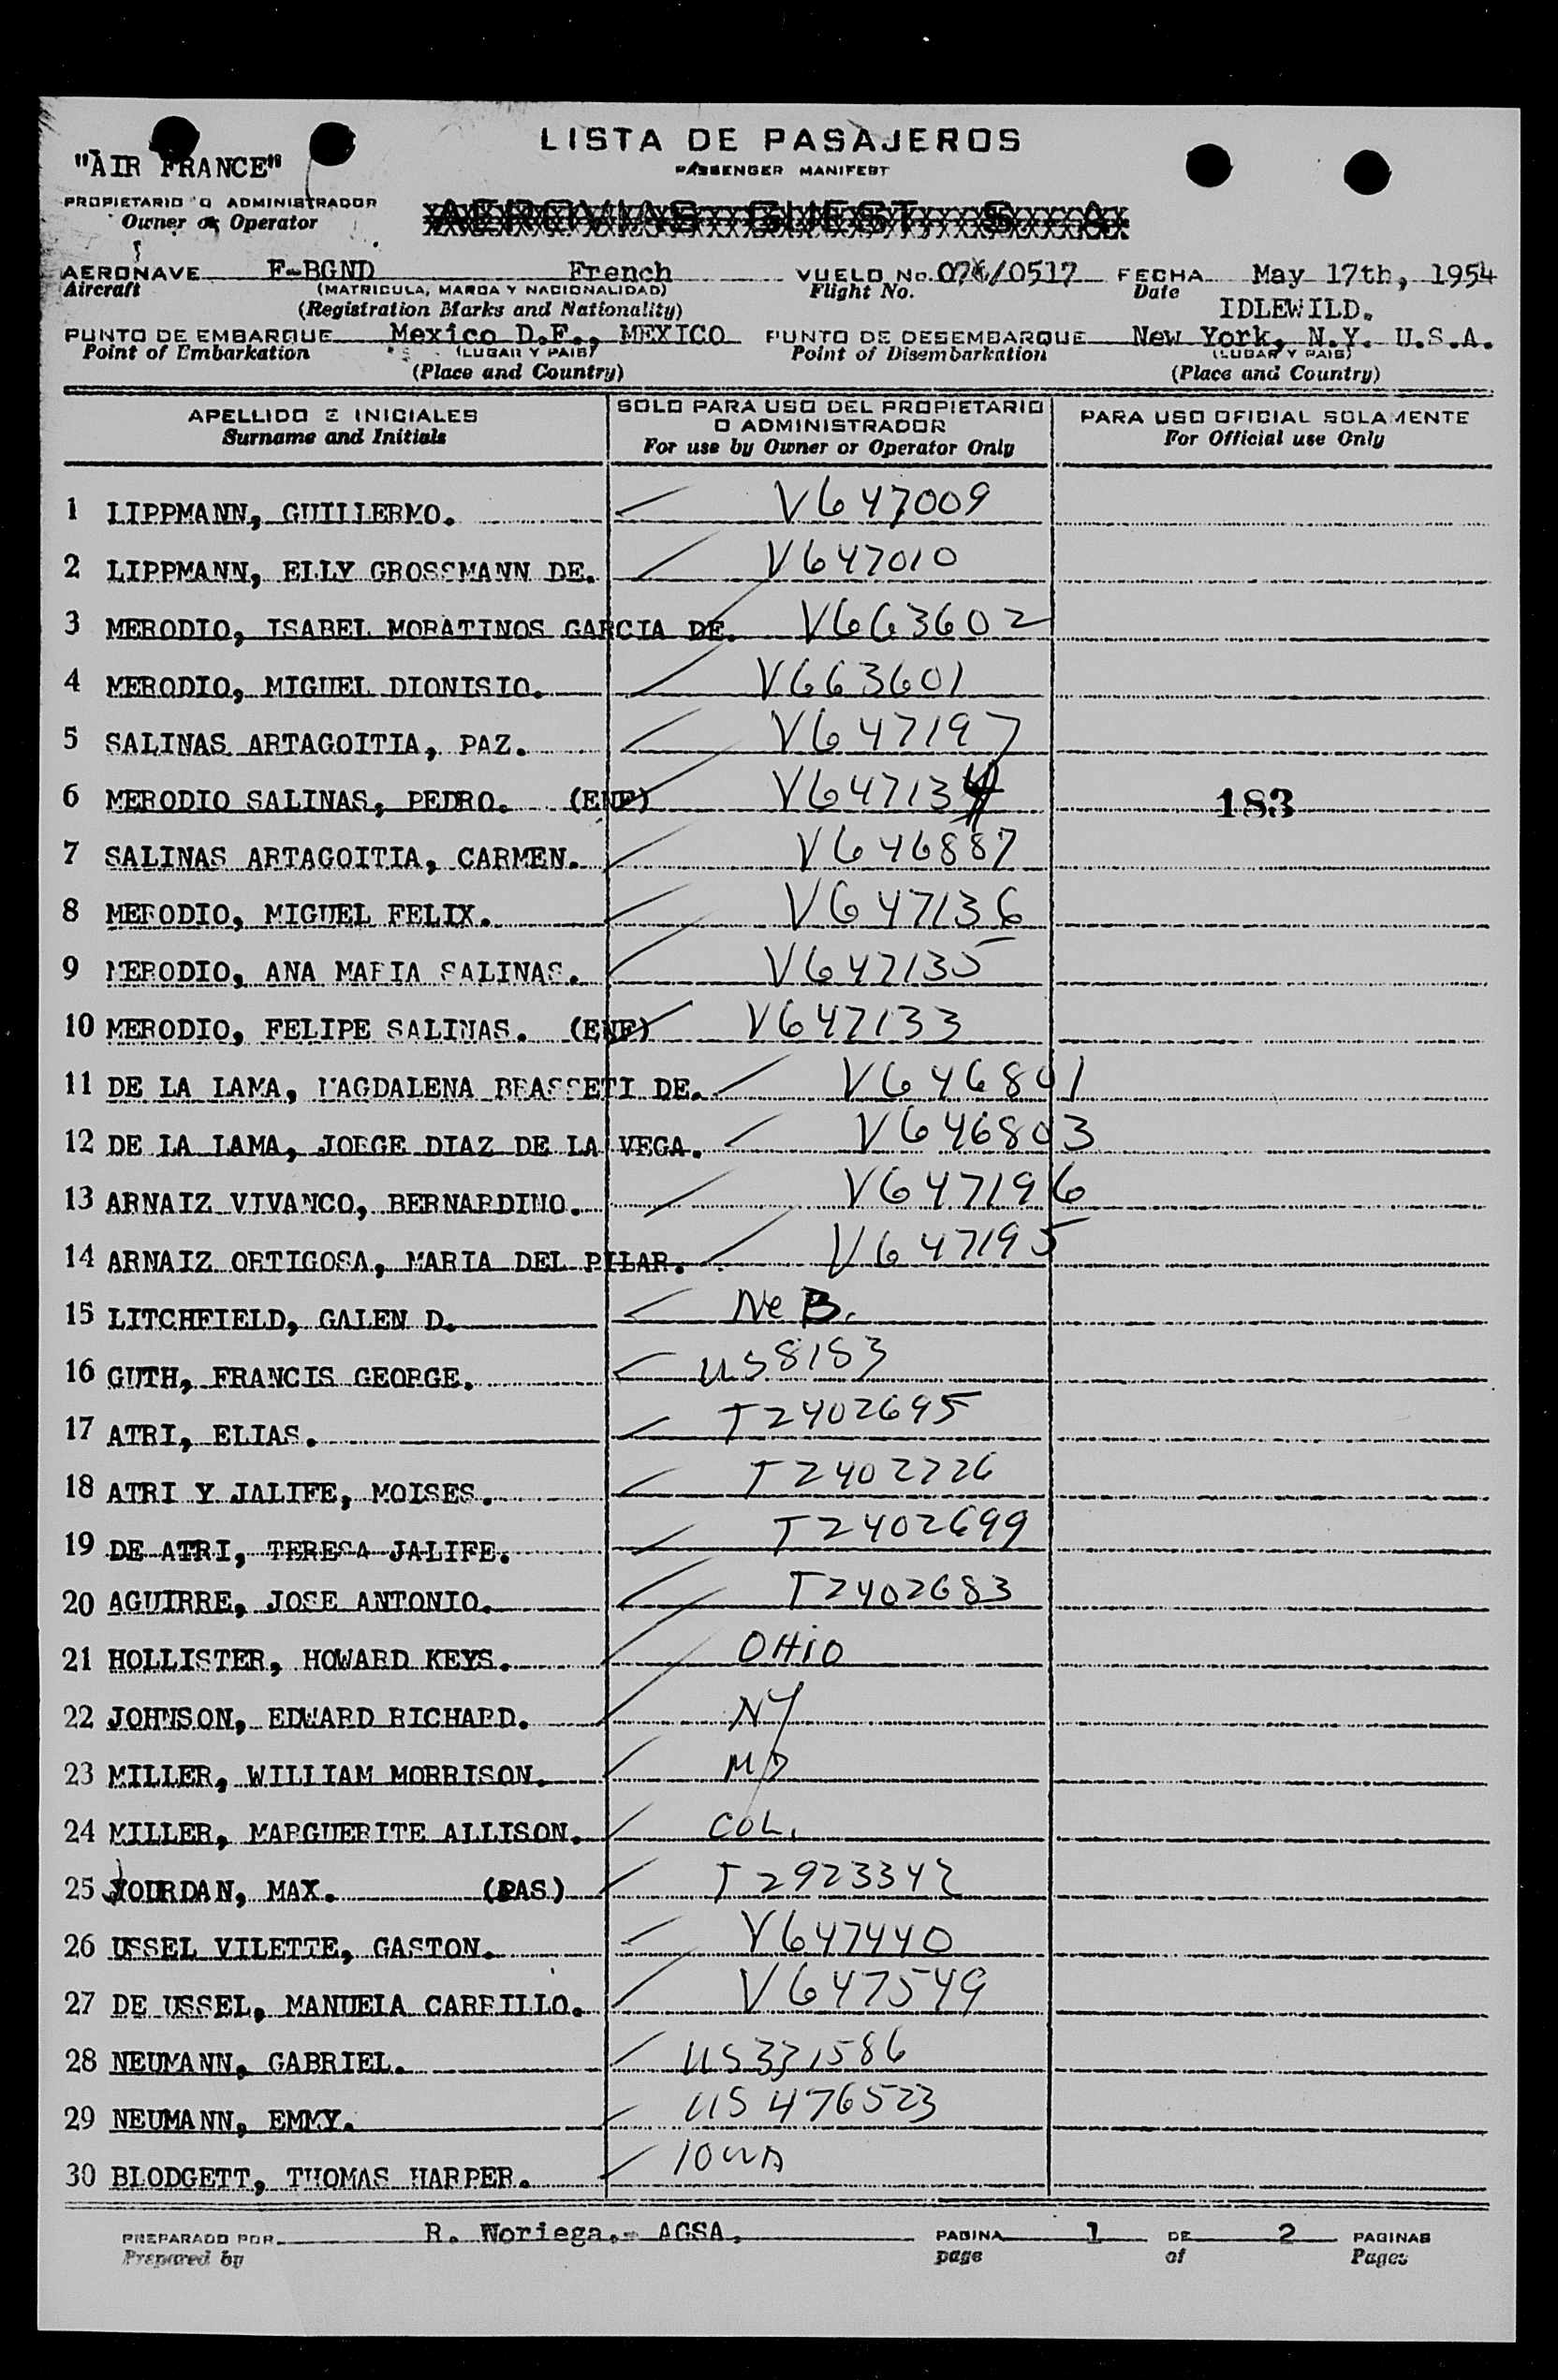 LISTA DE PASAJEROS
PASSENGER MANIFEST
"AIR FRANCE"
PROPIETARIO O ADMINISTRADOR
Owner or Operator
AEROVIAS GUEST, S. A.
AERONAVE F-BGND French VUELO No. /0517 FECHA May 17th, 1954
Aircraft (MATRICULA, MARCA Y NACIONALIDAD) Flight No. Date
(Registration Marks and Nationality) IDLEWILD.
PUNTO DE EMBARQUE Mexico D.F., MEXICO PUNTO DE DESEMBARQUE New York, N.Y. U.S.A.
Point of Embarkation (LUGAR Y PAIS) Point of Disembarkation (LUGAR Y PAIS)
(Place and Country) (Place and Country)
APELLIDO E INICIALES SOLO PARA USO DEL PROPIETARIO O ADMINISTRADOR PARA USO OFICIAL SOLAMENTE
Surname and Initials For use by Owner or Operator Only For Official use Only
1 LIPPMANN, GUILLERMO. V647009
2 LIPPMANN, ELLY GROSSMANN DE. V647010
3 MERODIO, ISABEL MORATINOS GARCIA DE. V663602
4 MERODIO, MIGUEL DIONISIO. V663601
5 SALINAS ARTAGOITIA, PAZ. V647197
6 MERODIO SALINAS, PEDRO. (ENF) V647134 183
7 SALINAS ARTAGOITIA, CARMEN. V646887
8 MERODIO, MIGUEL FELIX. V647136
9 MERODIO, ANA MARIA SALINAS. V647135
10 MERODIO, FELIPE SALINAS. (ENF) V647133
11 DE LA LAMA, MAGDALENA BRASSETI DE. V646801
12 DE LA LAMA, JORGE DIAZ DE LA VEGA. V646803
13 ARNAIZ VIVANCO, BERNARDINO. V647196
14 ARNAIZ ORTIGOSA, MARIA DEL PILAR. V647195
15 LITCHFIELD, GALEN D. NeB.
16 GUTH, FRANCIS GEORGE. US8183
17 ATRI, ELIAS. T2402695
18 ATRI Y JALIFE, MOISES. T2402726
19 DE ATRI, TERESA JALIFE. T2402699
20 AGUIRRE, JOSE ANTONIO. T2402683
21 HOLLISTER, HOWARD KEYS. OHiO
22 JOHNSON, EDWARD RICHARD. NY
23 MILLER, WILLIAM MORRISON. MD
24 MILLER, MARGUERITE ALLISON. COL.
25 JOURDAN, MAX. (PAS) T2923342
26 USSEL VILETTE, GASTON. V647440
27 DE USSEL, MANUELA CARRILLO. V647549
28 NEUMANN, GABRIEL. US331586
29 NEUMANN, EMMY. US476523
30 BLODGETT, THOMAS HARPER. IOWA
PREPARADO POR R. Noriega.- AGSA. PAGINA 1 DE 2 PAGINAS
Prepared by page of Pages